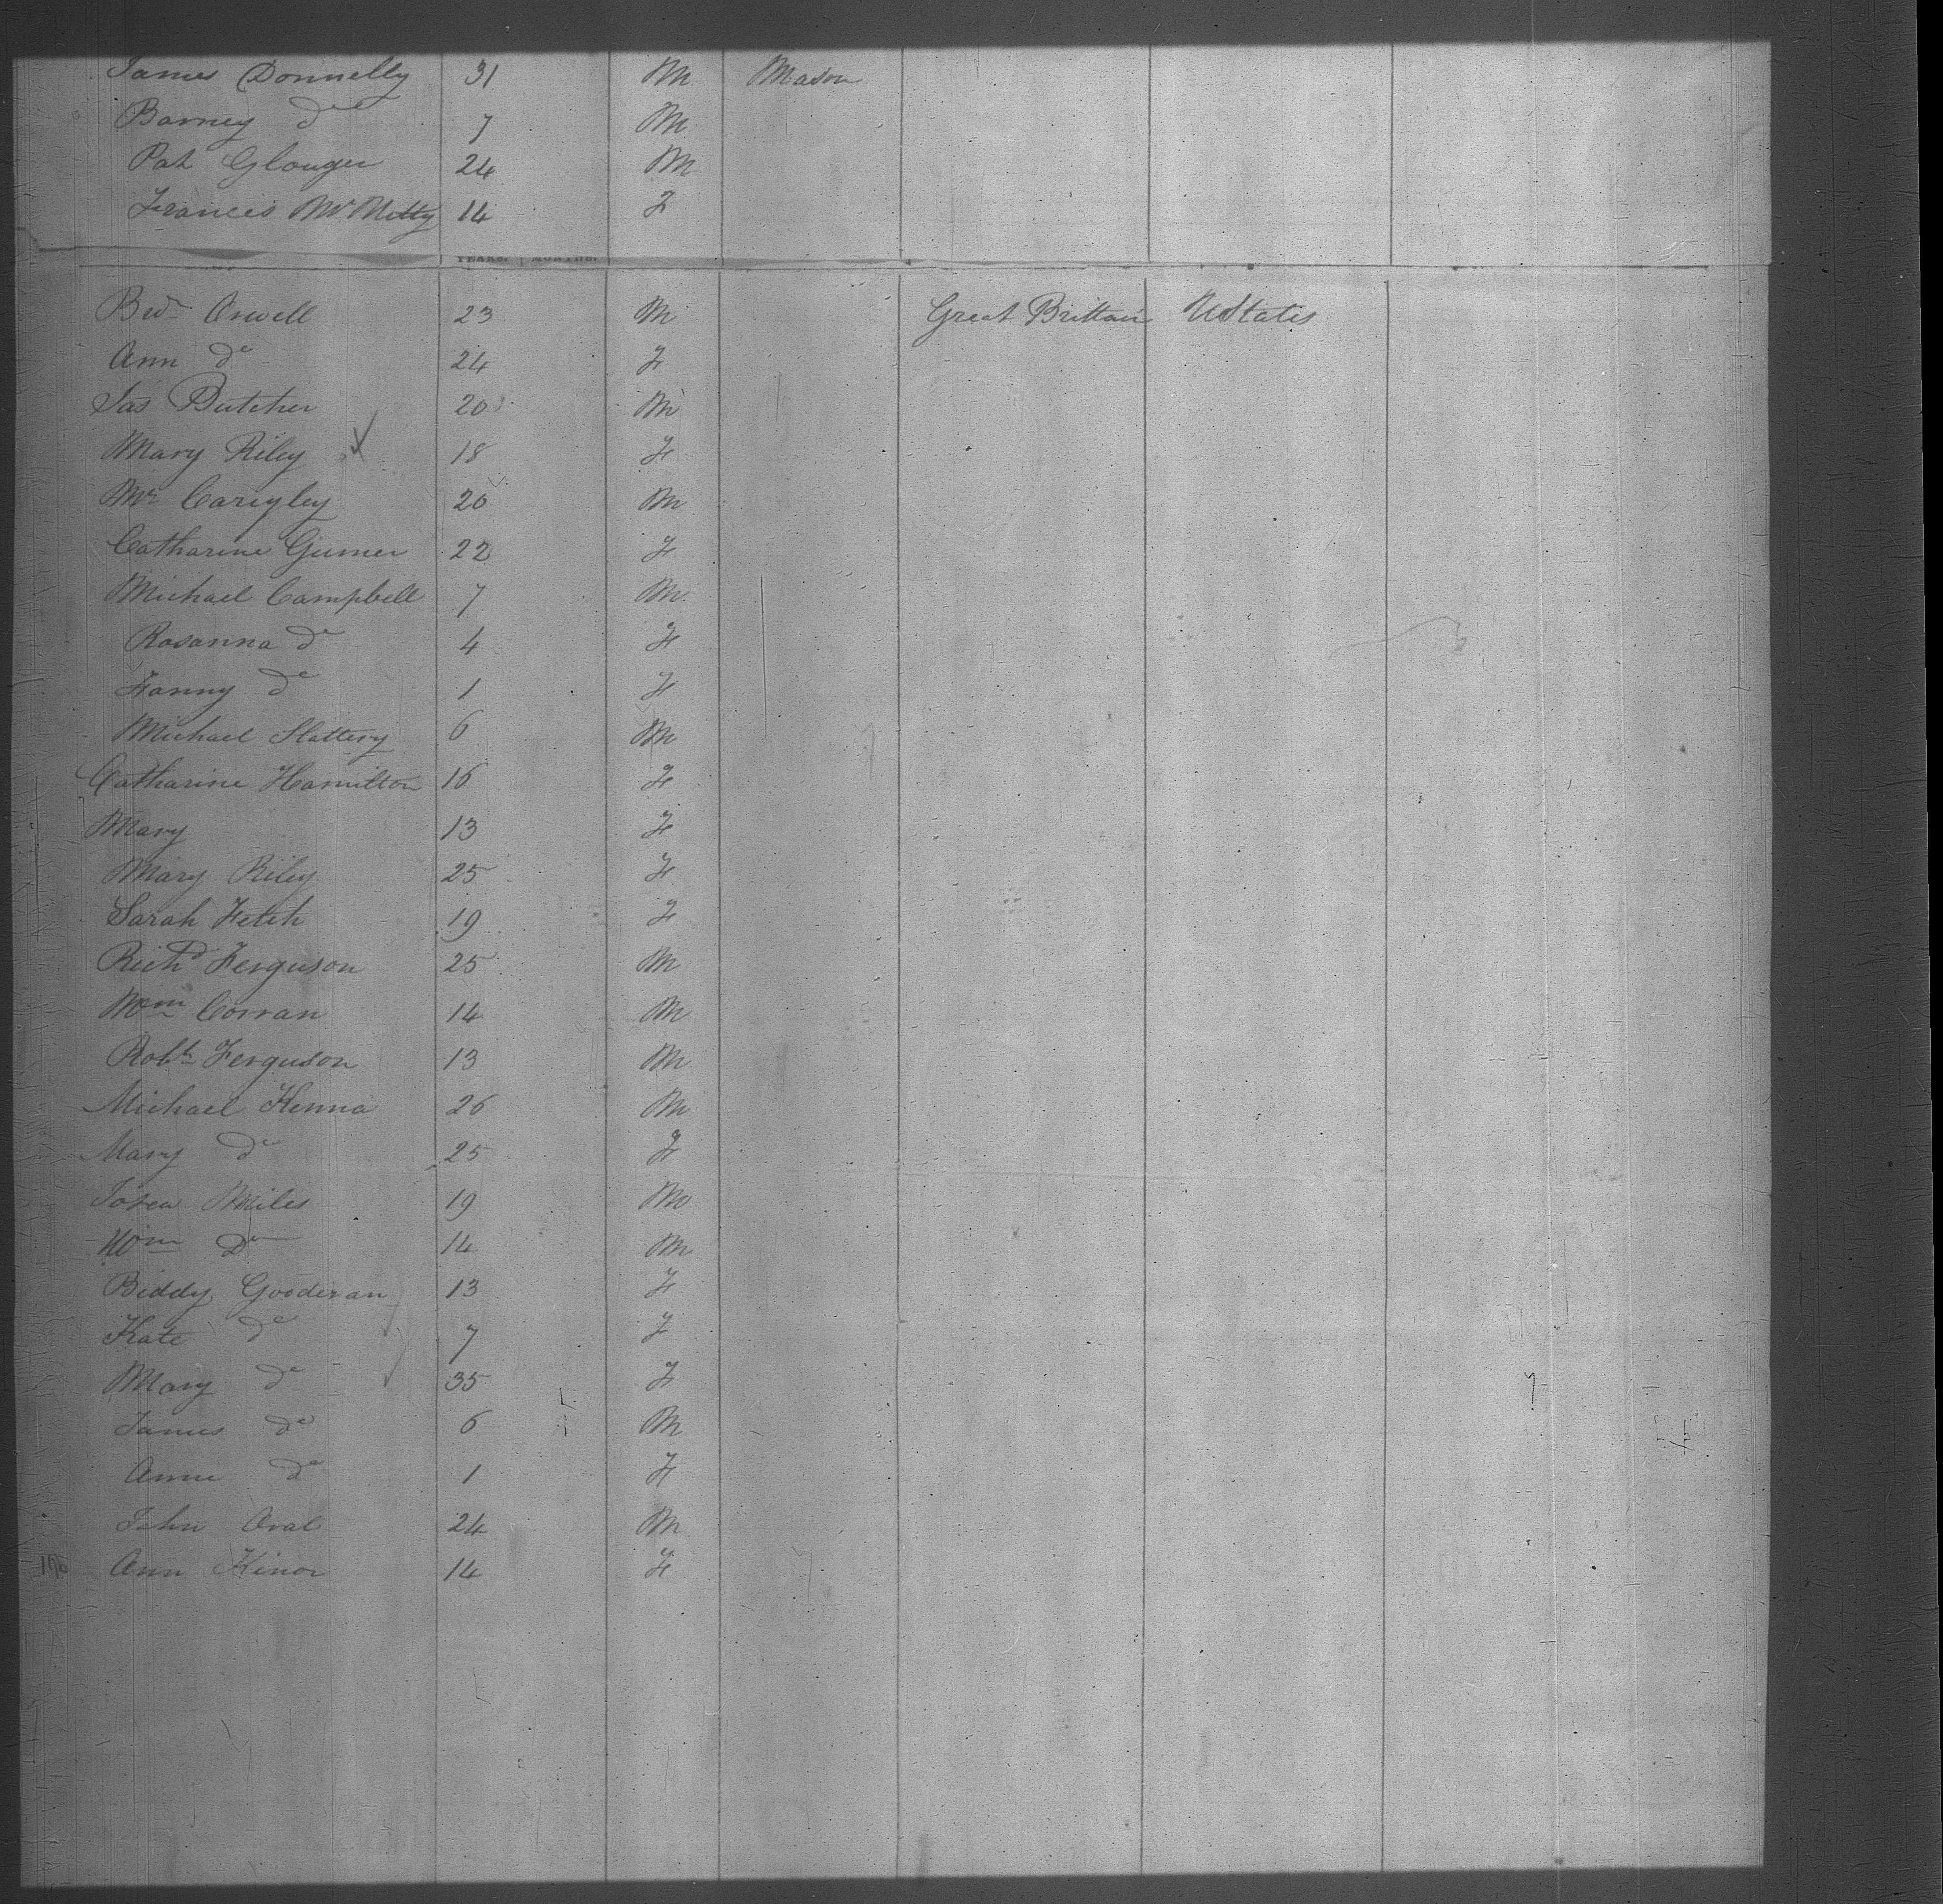 James Donnelly 31 M Mason
Barney Do 7 M
Pat Glouger 24 M
Frances McNitty 14 F
YEARS. MONTHS.
Bed Orwell 23 M Great Brittain UStates
Ann Do 24 F
Jas Butcher 20 M
Mary Riley 18 F
Mr Carigley 20 M
Catharine Gumer 22 F
Michael Campbell 7 M
Rosanna Do 4 F
Fanny Do 1 F
Michael Slattery 6 M
Catharine Hamilton 16 F
Mary 13 F
Mary Riley 25 F
Sarah Fetch 19 F
Richd Ferguson 25 M
Wm Corran 14 M
Robt Ferguson 13 M
Michael Kenna 26 M
Mary Do 25 F
Miles 19 M
Wm Do 14 M
Biddy Gooderan 13 F
Kate Do 7 F
Mary Do 35 F
James Do 6 M
Anne Do 1 F
John Oral 24 M
Ann Kinor 14 F